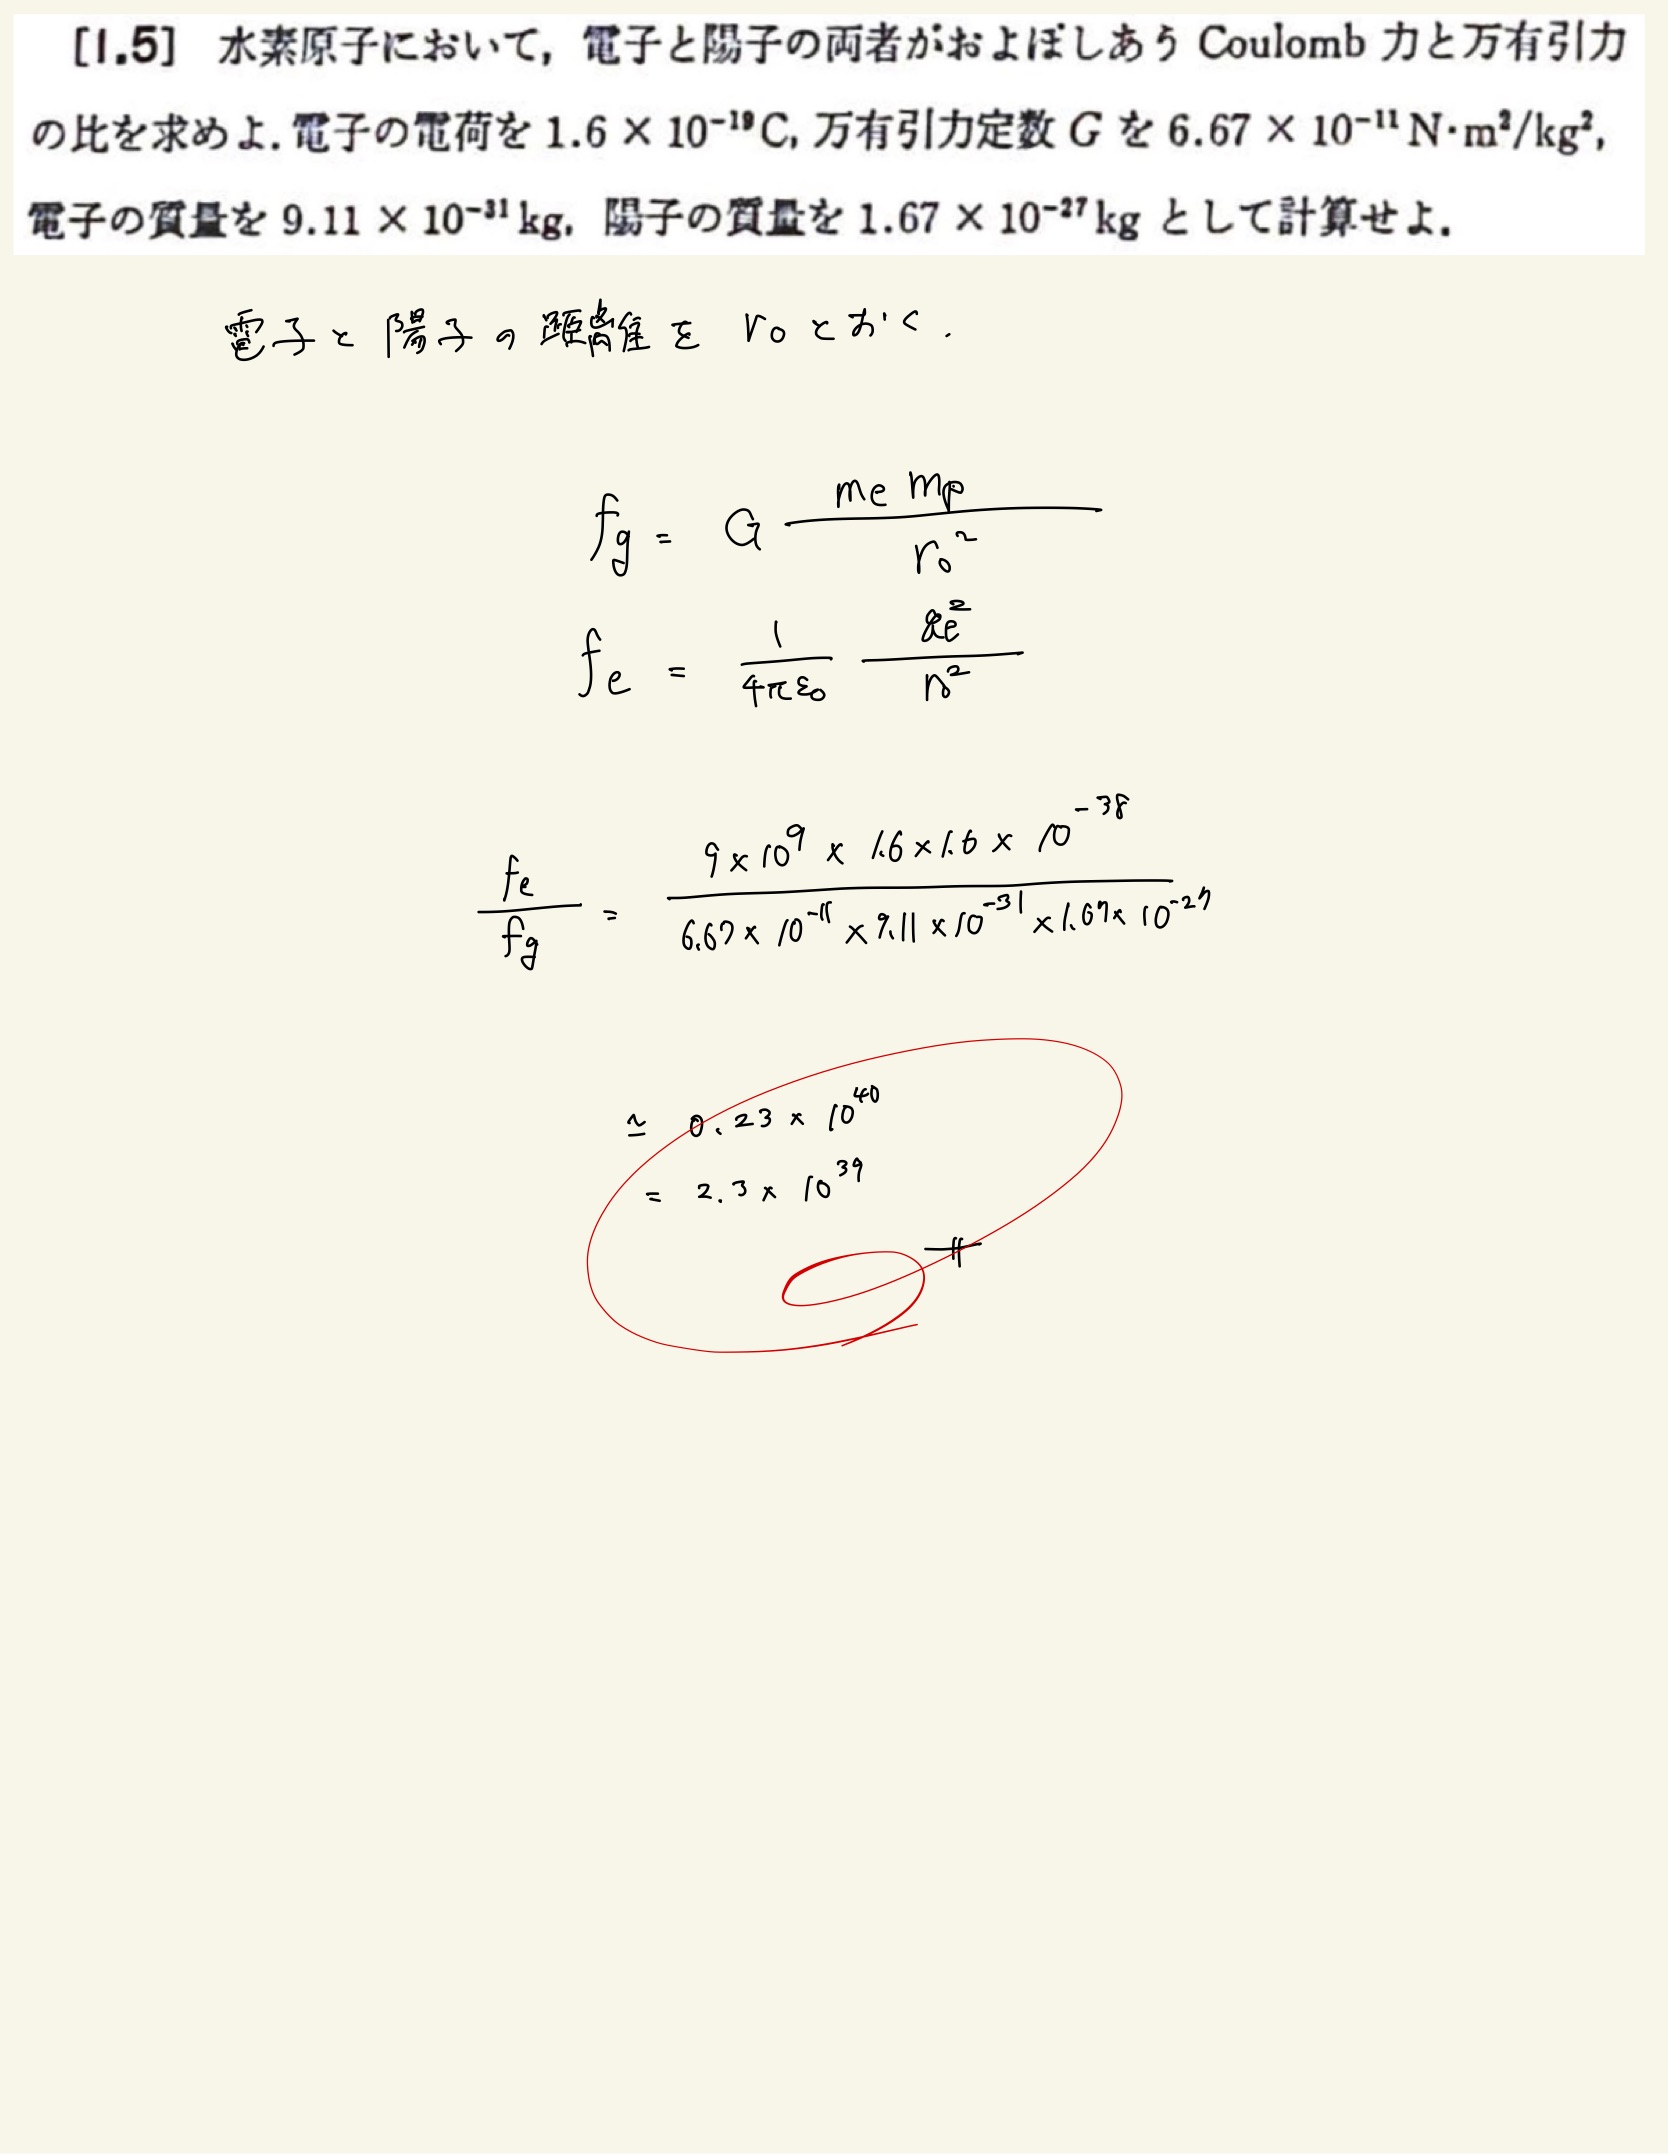 [1.5] 水素原子において，電子と陽子の両者がおよぼしあう Coulomb 力と万有引力
の比を求めよ．電子の電荷を 1.6 × 10⁻¹⁹ C, 万有引力定数 G を 6.67 × 10⁻¹¹ N·m²/kg²,
電子の質量を 9.11 × 10⁻³¹ kg, 陽子の質量を 1.67 × 10⁻²⁷ kg として計算せよ．
電子と陽子の距離を r₀ とおく.
f_g = G m_e m_p / r₀²
f_e = 1 / 4πε₀ q_e² / r₀²
f_e / f_g = 9 × 10⁹ × 1.6 × 1.6 × 10⁻³⁸ / 6.67 × 10⁻¹¹ × 9.11 × 10⁻³¹ × 1.67 × 10⁻²⁷
≃ 0.23 × 10⁴⁰
= 2.3 × 10³⁹